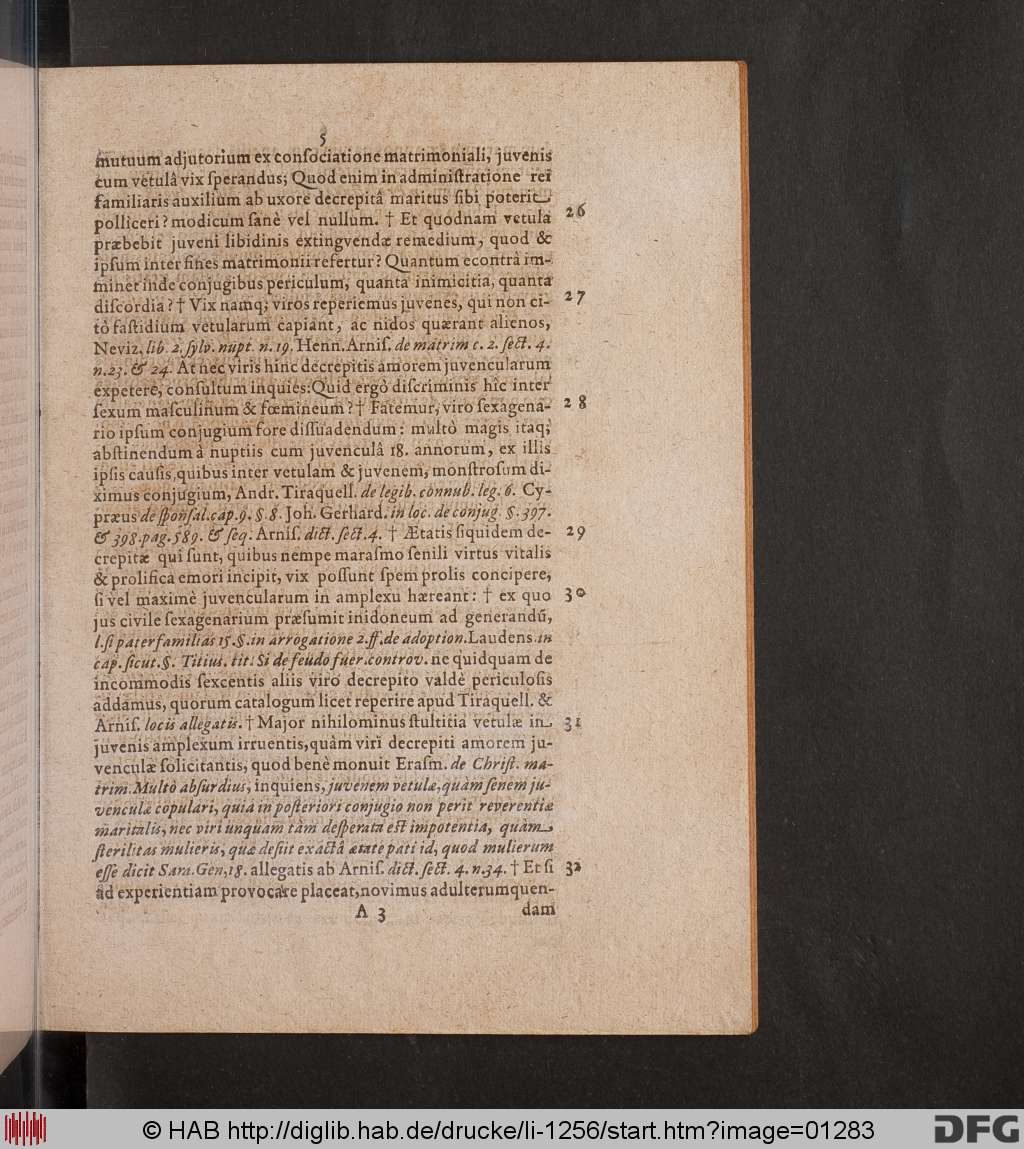 5
mutuum adjutorium ex conſociatione matrimoniali, juvenis
cum vetulâ vix ſperandus; Quod enim in adminiſtratione rei
familiaris auxilium ab uxore decrepitâ maritus ſibi poterit
polliceri? modicum ſanè vel nullum. † Et quodnam vetula 26
præbebit juveni libidinis extingvendæ remedium, quod &
ipſum inter fines matrimonii refertur? Quantum econtrà im-
minet inde conjugibus periculum, quanta inimicitia, quanta
diſcordia? † Vix namq; viros reperiemus juvenes, qui non ci- 27
tò faſtidium vetularum capiant, ac nidos quærant alienos,
Neviz. lib. 2. ſylv. nupt. n. 19. Henn. Arniſ. de matrim c. 2. ſect. 4.
n.23. & 24. At nec viris hinc decrepitis amorem juvencularum
expetere, conſultum inquies: Quid ergò diſcriminis hîc inter
ſexum maſculinum & fœmineum? † Fatemur, viro ſexagena- 28
rio ipſum conjugium fore diſſuadendum: multò magis itaq;
abſtinendum à nuptiis cum juvenculâ 18. annorum, ex illis
ipſis cauſis, quibus inter vetulam & juvenem, monſtroſum di-
ximus conjugium, Andr. Tiraquell. de legib. connub. leg. 6. Cy-
præus de ſponſal. cap. 9. §. 8. Joh. Gerhard. in loc. de conjug. §. 397.
& 398. pag. 589. & ſeq. Arniſ. dict. ſect. 4. † Ætatis ſiquidem de- 29
crepitæ qui ſunt, quibus nempe maraſmo ſenili virtus vitalis
& prolifica emori incipit, vix poſſunt ſpem prolis concipere,
ſi vel maximè juvencularum in amplexu hæreant: † ex quo 30
jus civile ſexagenarium præſumit inidoneum ad generandū,
l. ſi paterfamilias 15. §. in arrogatione 2. ff. de adoption. Laudens. in
cap. ſicut. §. Titius. tit. Si de feudo fuer. controv. ne quidquam de
incommodis ſexcentis aliis viro decrepito valdè periculoſis
addamus, quorum catalogum licet reperire apud Tiraquell. &
Arniſ. locis allegatis. † Major nihilominus ſtultitia vetulæ in 31
juvenis amplexum irruentis, quàm viri decrepiti amorem ju-
venculæ ſolicitantis, quod benè monuit Eraſm. de Chriſt. ma-
trim. Multò abſurdius, inquiens, juvenem vetulæ, quàm ſenem ju-
venculæ copulari, quia in poſteriori conjugio non perit reverentia
maritalis, nec viri unquam tàm deſperata eſt impotentia, quàm
ſterilitas mulieris, quæ deſiit exactâ ætate pati id, quod mulierum
eſſe dicit Sara. Gen, 18. allegatis ab Arniſ. dict. ſect. 4. n. 34. † Et ſi 32
ad experientiam provocare placeat, novimus adulterum quen-
A 3 dam
© HAB http://diglib.hab.de/drucke/li-1256/start.htm?image=01283
DFG